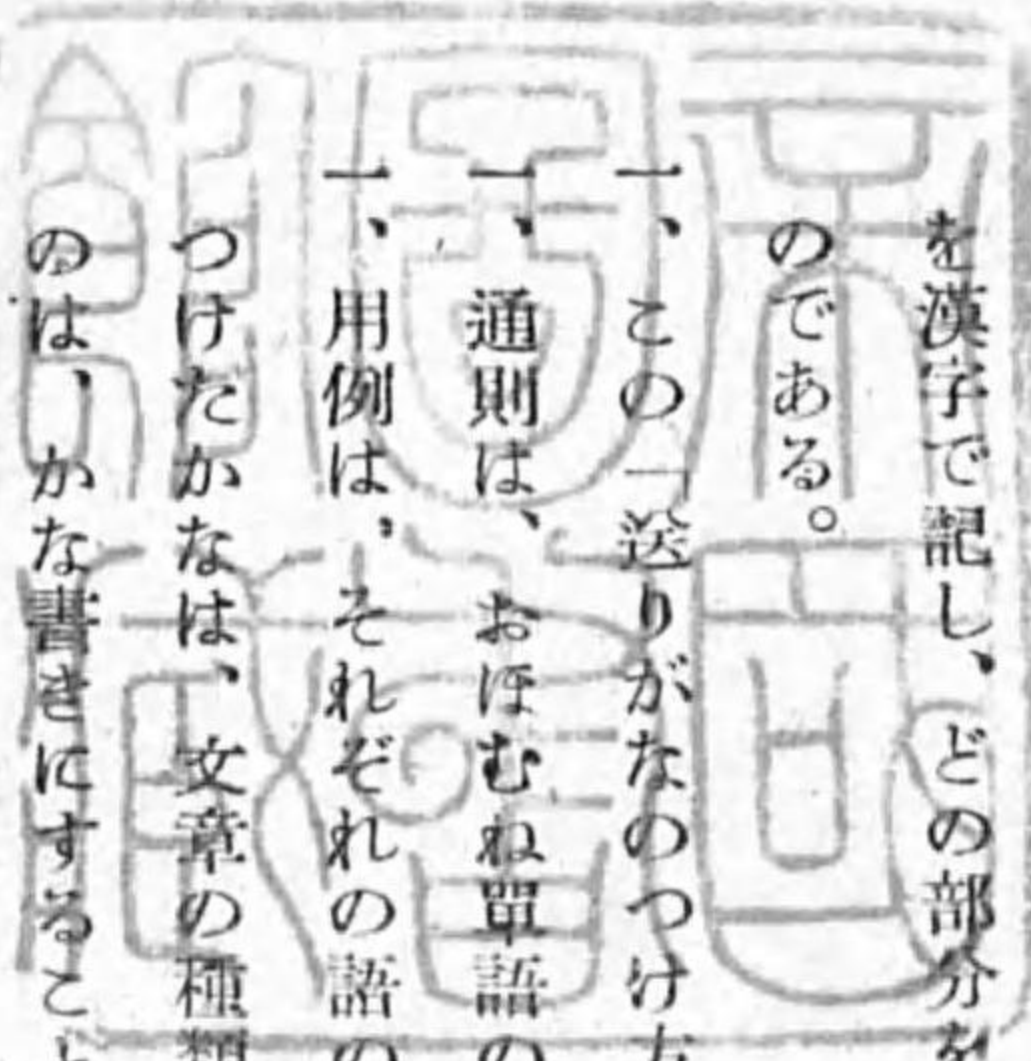 を漢字で記し、どの部分を
のである。
一、この「送りがなのつけ方
一、通則は、おほむね單語の
一、用例は、それぞれの語の
つけたかなは、文章の種類
のは、かな書きにするこ